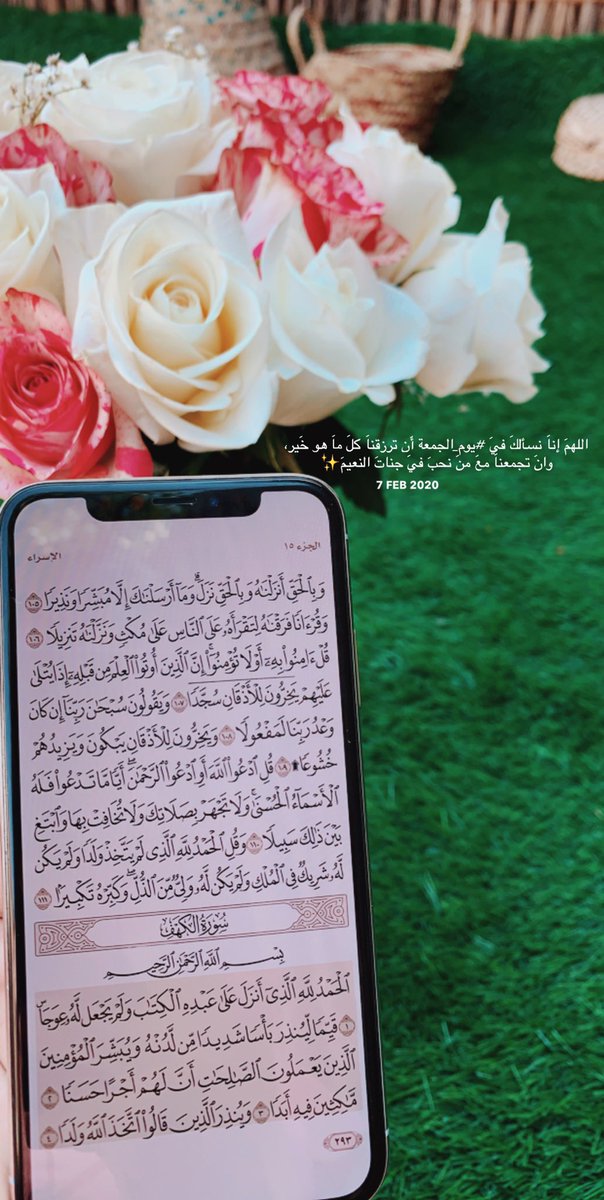 اللهمَ إناَ نسألكَ فيَ #يوم_الجمعة أَن ترزقناَ كلَ ماَ هو خَير،
وانَ تجمعناَ معَ منَ نحبَ في جناتَ النعيمَ✨
7 FEB 2020
الجزء ١٥
الإسراء
وَبِالْحَقِّ أَنزَلْنَٰهُ وَبِالْحَقِّ نَزَلَ ۗ وَمَآ أَرْسَلْنَٰكَ إِلَّا مُبَشِّرًا وَنَذِيرًا ١٠٥
وَقُرْءَانًا فَرَقْنَٰهُ لِتَقْرَأَهُۥ عَلَى ٱلنَّاسِ عَلَىٰ مُكْثٍ وَنَزَّلْنَٰهُ تَنزِيلًا ١٠٦
قُلْ ءَامِنُوا۟ بِهِۦٓ أَوْ لَا تُؤْمِنُوٓا۟ ۚ إِنَّ ٱلَّذِينَ أُوتُوا۟ ٱلْعِلْمَ مِن قَبْلِهِۦٓ إِذَا يُتْلَىٰ
عَلَيْهِمْ يَخِرُّونَ لِلْأَذْقَانِ سُجَّدًا ١٠٧ وَيَقُولُونَ سُبْحَٰنَ رَبِّنَآ إِن كَانَ
وَعْدُ رَبِّنَا لَمَفْعُولًا ١٠٨ وَيَخِرُّونَ لِلْأَذْقَانِ يَبْكُونَ وَيَزِيدُهُمْ
خُشُوعًا ۩ ١٠٩ قُلِ ٱدْعُوا۟ ٱللَّهَ أَوِ ٱدْعُوا۟ ٱلرَّحْمَٰنَ ۖ أَيًّا مَّا تَدْعُوا۟ فَلَهُ
ٱلْأَسْمَآءُ ٱلْحُسْنَىٰ ۚ وَلَا تَجْهَرْ بِصَلَاتِكَ وَلَا تُخَافِتْ بِهَا وَٱبْتَغِ
بَيْنَ ذَٰلِكَ سَبِيلًا ١١٠ وَقُلِ ٱلْحَمْدُ لِلَّهِ ٱلَّذِى لَمْ يَتَّخِذْ وَلَدًا وَلَمْ يَكُن
لَّهُۥ شَرِيكٌ فِى ٱلْمُلْكِ وَلَمْ يَكُن لَّهُۥ وَلِىٌّ مِّنَ ٱلذُّلِّ ۖ وَكَبِّرْهُ تَكْبِيرًۢا ١١١
سُورَةُ الكَهْفِ
بِسْمِ ٱللَّهِ ٱلرَّحْمَٰنِ ٱلرَّحِيمِ
ٱلْحَمْدُ لِلَّهِ ٱلَّذِىٓ أَنزَلَ عَلَىٰ عَبْدِهِ ٱلْكِتَٰبَ وَلَمْ يَجْعَل لَّهُۥ عِوَجَا ۜ
١ قَيِّمًا لِّيُنذِرَ بَأْسًا شَدِيدًا مِّن لَّدُنْهُ وَيُبَشِّرَ ٱلْمُؤْمِنِينَ
ٱلَّذِينَ يَعْمَلُونَ ٱلصَّٰلِحَٰتِ أَنَّ لَهُمْ أَجْرًا حَسَنًا ٢
مَّٰكِثِينَ فِيهِ أَبَدًا ٣ وَيُنذِرَ ٱلَّذِينَ قَالُوا۟ ٱتَّخَذَ ٱللَّهُ وَلَدًا ٤
٢٩٣